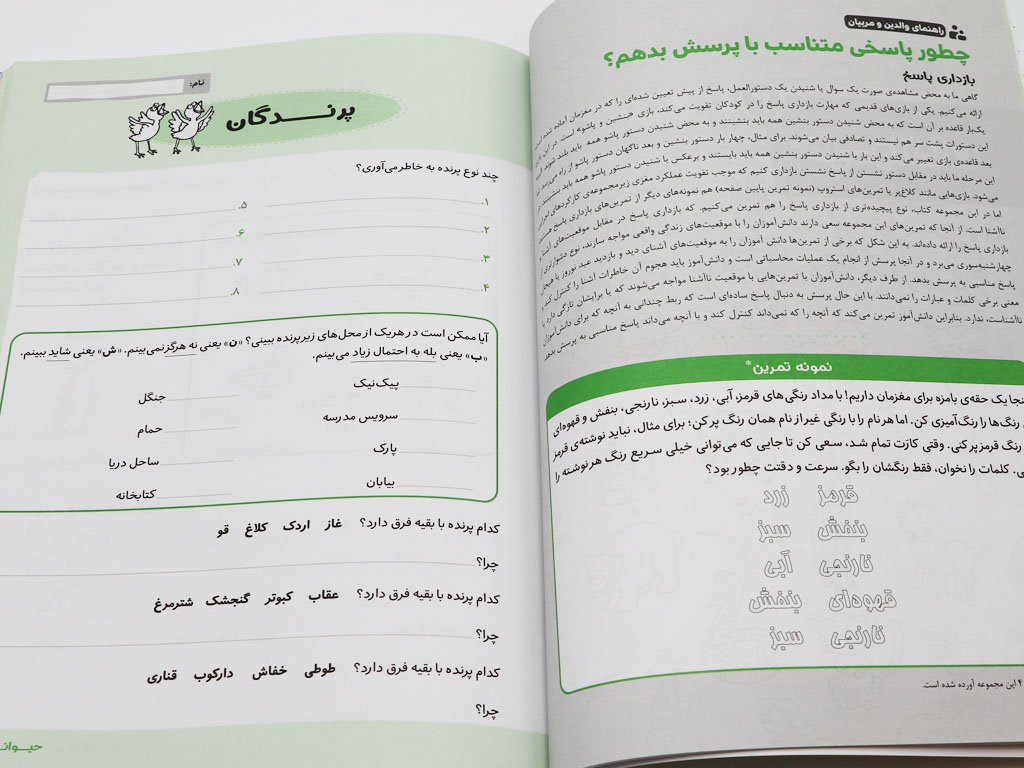 راهنمای والدین و مربیان
چطور پاسخی متناسب با پرسش بدهم؟
بازداری پاسخ
گاهی ما به محض مشاهده‌ی صورت یک سوال یا شنیدن یک دستورالعمل، پاسخ از پیش تعیین شده‌ای را که در مغزمان آماده شده
ارائه می‌کنیم. یکی از بازی‌های قدیمی که مهارت بازداری پاسخ را در کودکان تقویت می‌کند، بازی «بنشین و پاشو» است. در این بازی
یک‌بار قاعده بر آن است که به محض شنیدن دستور بنشین همه باید بنشینند و به محض شنیدن دستور پاشو همه باید بلند شوند.
این دستورات پشت سر هم نیستند و تصادفی بیان می‌شوند. برای مثال، چهار بار دستور بنشین و بعد ناگهان دستور پاشو از راه می‌رسد.
بعد قاعده‌ی بازی تغییر می‌کند و این بار با شنیدن دستور بنشین همه باید بایستند و برعکس با شنیدن دستور پاشو همه باید بنشینند.
این مرحله ما باید در مقابل دستور نشستن از پاسخ نشستن بازداری کنیم که موجب تقویت عملکرد مغزی زیرمجموعه‌ی کارکردهای اجرایی
می‌شود. بازی‌هایی مانند کلاغ‌پر یا تمرین‌های استروپ (نمونه تمرین پایین صفحه) هم نمونه‌های دیگر از تمرین‌های بازداری پاسخ هستند.
اما در این مجموعه کتاب، نوع پیچیده‌تری از بازداری پاسخ را هم تمرین می‌کنیم. که بازداری پاسخ در مقابل موقعیت‌های آشنا
ناآشنا است. از آنجا که تمرین‌های این مجموعه سعی دارند دانش‌آموزان را با موقعیت‌های زندگی واقعی مواجه سازند، نوع دشوارتری از
بازداری پاسخ را ارائه داده‌اند. به این شکل که برخی از تمرین‌ها دانش آموزان را به موقعیت‌های آشنای دید و بازدید عید نوروز یا هیجان
چهارشنبه‌سوری می‌برد و در آنجا پرسش از انجام یک عملیات محاسباتی است و دانش‌آموز باید هجوم آن خاطرات آشنا را کنترل کند و
پاسخ مناسبی به پرسش بدهد. از طرف دیگر، دانش‌آموزان با تمرین‌هایی با موقعیت ناآشنا مواجه می‌شوند که یا برایشان تازگی دارد یا
معنی برخی کلمات و عبارات را نمی‌دانند. با این حال پرسش به دنبال پاسخ ساده‌ای است که ربط چندانی به آنچه که برای دانش‌آموز
ناآشناست، ندارد. بنابراین دانش‌آموز تمرین می‌کند که آنچه را که نمی‌داند کنترل کند و با آنچه می‌داند پاسخ مناسبی به پرسش بدهد.
نمونه تمرین*
یک حقه‌ی بامزه برای مغزمان داریم! با مداد رنگی‌های قرمز، آبی، زرد، سبز، نارنجی، بنفش و قهوه‌ای
رنگ‌ها را رنگ‌آمیزی کن. اما هر نام را با رنگی غیر از نام همان رنگ پر کن؛ برای مثال، نباید نوشته‌ی قرمز
رنگ قرمز پر کنی. وقتی کارت تمام شد، سعی کن تا جایی که می‌توانی خیلی سریع رنگ هر نوشته را
کلمات را نخوان، فقط رنگشان را بگو. سرعت و دقتت چطور بود؟
قرمز زرد
بنفش سبز
نارنجی آبی
قهوه‌ای بنفش
نارنجی سبز
۴ این مجموعه آورده شده است.
نام:
پرنـــدگان
چند نوع پرنده به خاطر می‌آوری؟
۱. ۵.
۲. ۶.
۳. ۷.
۴. ۸.
آیا ممکن است در هریک از محل‌های زیر پرنده ببینی؟ «ن» یعنی نه هرگز نمی‌بینم. «ش» یعنی شاید ببینم.
«ب» یعنی بله به احتمال زیاد می‌بینم.
پیک‌نیک جنگل
سرویس مدرسه حمام
پارک ساحل دریا
بیابان کتابخانه
کدام پرنده با بقیه فرق دارد؟ غاز اردک کلاغ قو
چرا؟
کدام پرنده با بقیه فرق دارد؟ عقاب کبوتر گنجشک شترمرغ
چرا؟
کدام پرنده با بقیه فرق دارد؟ طوطی خفاش دارکوب قناری
چرا؟